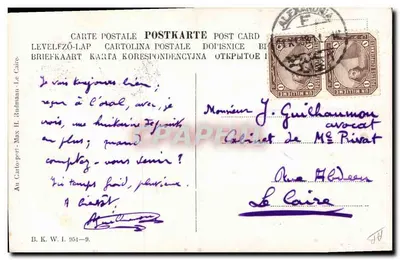 CARTE POSTALE POSTKARTE POST CARD
LEVELEZŐ-LAP CARTOLINA POSTALE DOPISNICE
BRIEFKAART KARTA KORESPONDENCYJNA ОТКРЫТОЕ
ALEXANDRIA
Je vais toujours bien;
reçu à l'oral, avec, je
crois, une huitaine
en plus; quand
comptez-vous venir?
Ici temps froid,
A bientôt
Guilhaumon
Monsieur J. Guilhaumon
avocat
Cabinet de Me Privat
Rue Abdeen
Le Caire
Au Carto-port - Max H. Rudmann - Le Caire
B. K. W. I. 951-9.